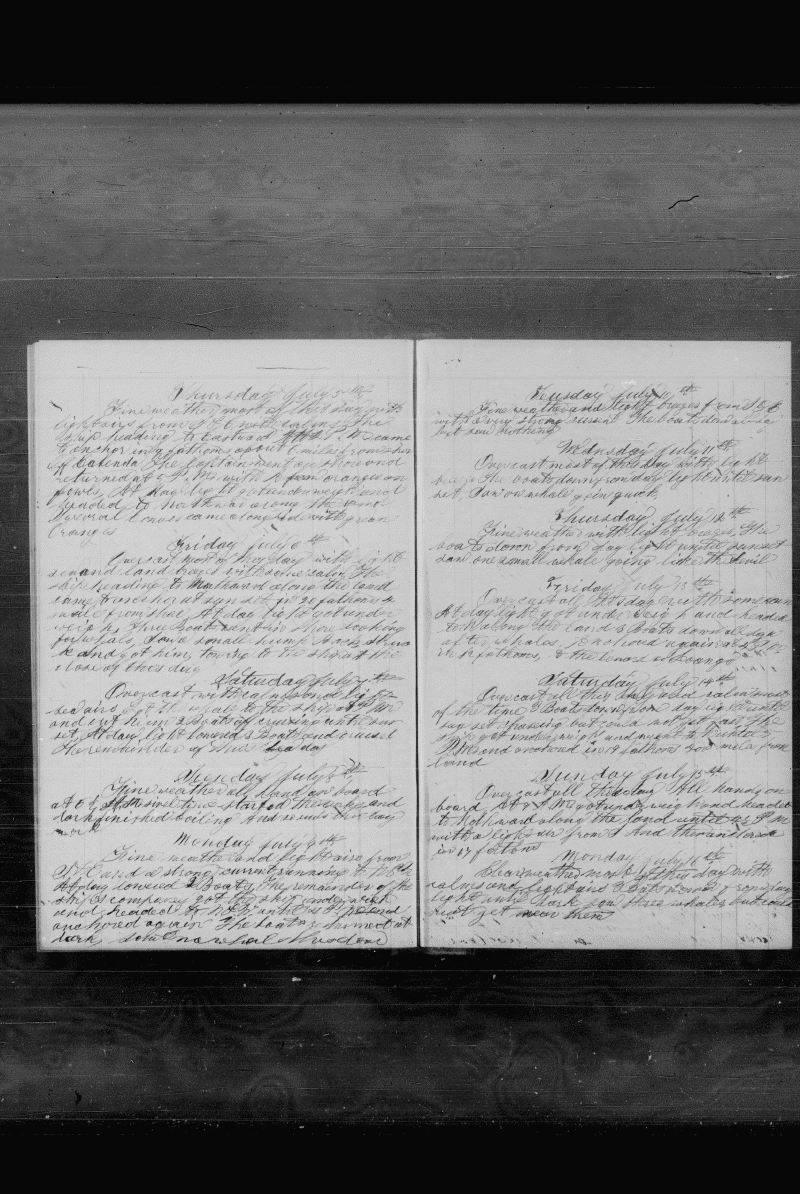 Thursday July 5th
Fine weather most of this day with
light airs from S & E with calms the
ship heading to Eastward At 2 PM came
to anchor in 9 fathoms about 6 miles from shore
off Cabenda The Captain went on shore and
returned at 5 PM with a few oranges and
fowls, At day light got underweigh and
headed to North'ard along the land
Several canoes came alongside with green
Oranges
Friday July 6th
Overcast most of this day with light
sea and land brezes with some calm The
ship heading to Northward along the land
came to anchor at sun set in 20 fathoms
miles from shore, At day light got under
weigh, Three Boats went in shore looking
for whals, Saw a small hump back, struck
and got him, towing to the ship at the
close of this day
Saturday July 7th
Overcast with calms and light
sea airs Got the whale to the ship at PM
and cut him in 2 Boats off cruising until sun
set, At day light lowered 3 Boats and cruised
the remainder of these sea day
Sunday July 8th
Fine weather all hands on board
At 8 AM started the works and
dark finished boiling And so ends this day
work
Monday July 9th
Fine weather and light airs from
S W and a strong current running to N & W
At day lowered 2 Boats, the remainder of the
ships company got the ship underweigh
and headed to N & W until 5 PM and
anchored again The boats came at
dark,
Tuesday July 10th
Fine weather and light brezes from S & E
with a very strong current The boats down all day
but saw nothing
Wednesday July 11th
Overcast most of this day with light
brezes the boats down from day light until sun
set, Saw one whale going quick
Thursday July 12th
Fine weather with light brezes, The
boats down from day light until sunset
saw one small whale going like the Devil
Friday July 13th
Overcast all this day with some rain
At day light got under weigh and headed
to N along the land 3 Boats down all day
after whales, anchored again at
in fathoms, & the tenor of Loango
Saturday July 14th
Overcast all this day and calm most
of the time 3 Boats down from day light until
sun set chasing but could not get fast The
ship got under weigh and went to North'd
PM and anchored in 19 fathoms miles from
land
Sunday July 15th
Overcast all this day All hands on
board, At 8 AM got under weigh and headed
to Northward along the land until PM
with a light air from S And then anchored
in 17 fathoms
Monday July 16th
Clear weather most of this day with
calms and light airs 3 Boats down from day
light until dark saw three whales but could
not get near them